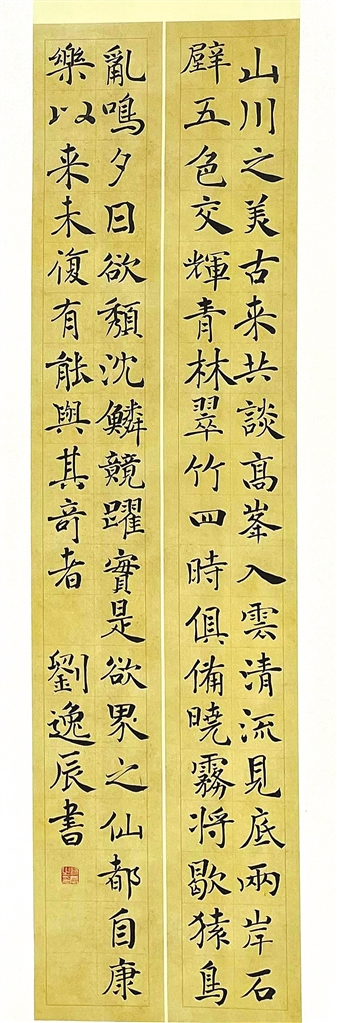 山川之美古来共談髙峯入雲清流見底兩岸石
壁五色交輝青林翠竹四時俱備曉霧将歇猿鳥
亂鳴夕日欲頹沈鱗競躍實是欲界之仙都自康
樂以来未復有能與其奇者 劉逸辰書